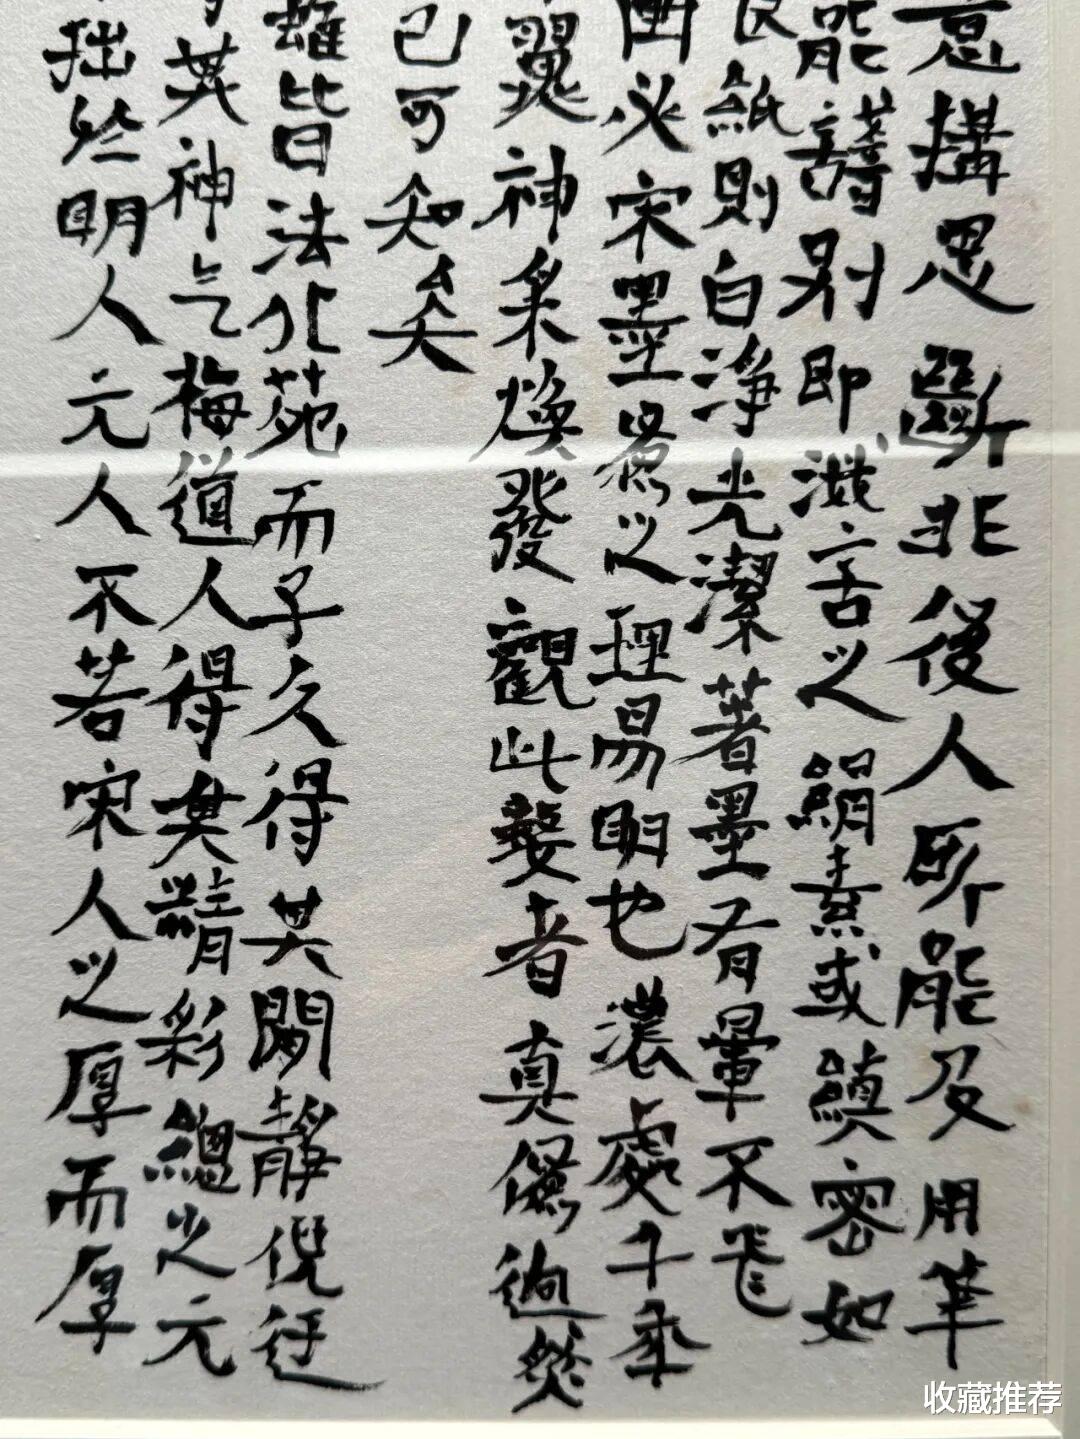 意構思斷非後人所能及用筆
能譸別即灭言之絹素或縝密如
紙則白淨光潔著墨有暈不飛
必宋墨爲之理易明也濃處千年
翼神采煥發觀此數者真僞迥然
已可知矣
雖皆法北苑而子久得其閒靜倪迂
其神气梅道人得其精彩總之元
拙然明人元人不若宋人之厚而厚
收藏推荐